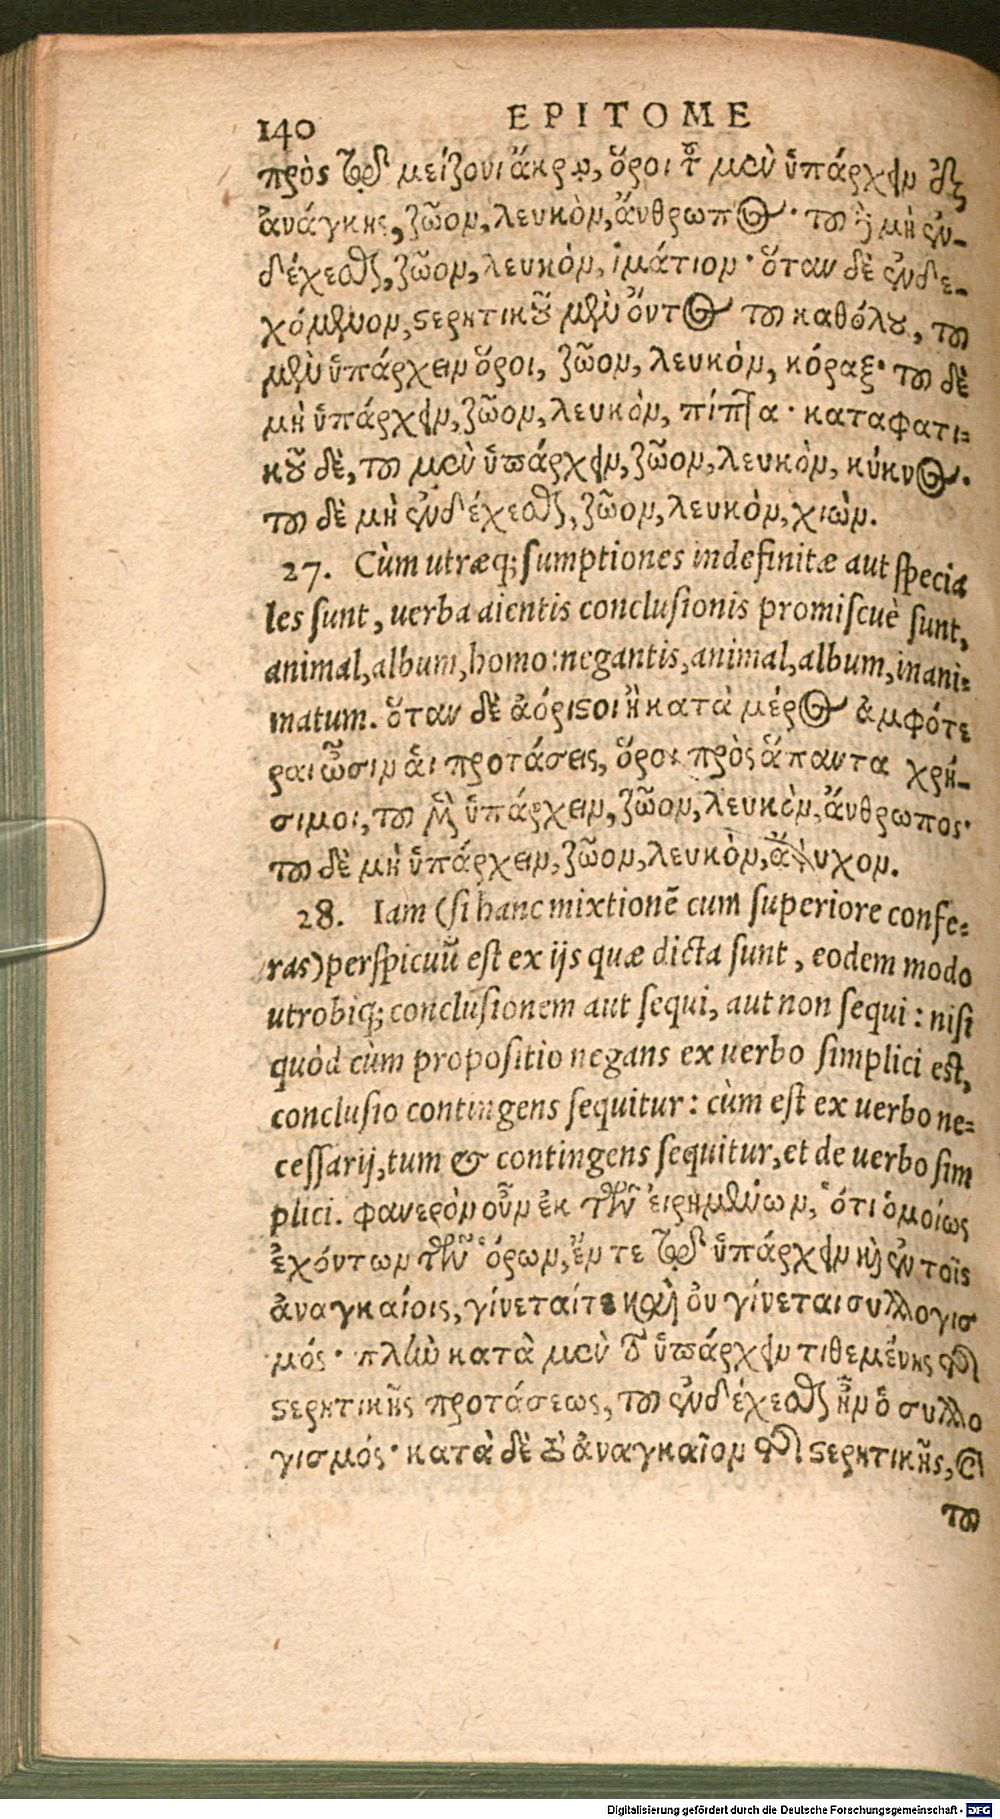 140 EPITOME
πρὸς τῷ μείζονι ἄκρῳ, ὅροι τοῦ μὲν ὑπάρχειν ἐξ
ἀνάγκης, ζῶον, λευκὸν, ἄνθρωπος· τοῦ δὲ μὴ ἐν-
δέχεσθαι, ζῶον, λευκόν, ἱμάτιον· ὅταν δὲ ἐνδε-
χόμενον, στερητικοῦ μὲν ὄντος τοῦ καθόλου, τοῦ
μὲν ὑπάρχειν ὅροι, ζῶον, λευκὸν, κόραξ· τοῦ δὲ
μὴ ὑπάρχειν, ζῶον, λευκὸν, πίττα· καταφατι-
κοῦ δὲ, τοῦ μὲν ὑπάρχειν, ζῶον, λευκὸν, κύκνος.
τοῦ δὲ μὴ ἐνδέχεσθαι, ζῶον, λευκὸν, χιὼν.
27. Cùm utræq; sumptiones indefinitæ aut specia
les sunt, uerba aientis conclusionis promiscuè sunt,
animal, album, homo: negantis, animal, album, inani-
matum. ὅταν δὲ ἀόριστοι ἢ κατὰ μέρος ἀμφότε
ραι ὦσιν ἁι προτάσεις, ὅροι πρὸς ἅπαντα χρή-
σιμοι, τοῦ μὲν ὑπάρχειν, ζῶον, λευκὸν, ἄνθρωπος·
τοῦ δὲ μὴ ὑπάρχειν, ζῶον, λευκὸν, ἄψυχον.
28. Iam (si hanc mixtionē cum superiore confe-
ras) perspicuū est ex ijs quæ dicta sunt, eodem modo
utrobiq; conclusionem aut sequi, aut non sequi: nisi
quòd cùm propositio negans ex uerbo simplici est,
conclusio contingens sequitur: cùm est ex uerbo ne-
cessarij, tum & contingens sequitur, et de uerbo sim
plici. φανερὸν οὖν ἐκ τῶν εἰρημένων, ὅτι ὁμοίως
ἐχόντων τῶν ὅρων, ἔν τε τῷ ὑπάρχειν καὶ ἐν τοῖς
ἀναγκαίοις, γίνεταί τε καὶ οὐ γίνεται συλλογισ
μός· πλὴν κατὰ μὲν τὸ ὑπάρχειν τιθεμένης τῆς
στερητικῆς προτάσεως, τοῦ ἐνδέχεσθαι ἦν ὁ συλλο
γισμός· κατὰ δὲ τὸ ἀναγκαῖον τῆς στερητικῆς, καὶ
τοῦ
Digitalisierung gefördert durch die Deutsche Forschungsgemeinschaft - DFG